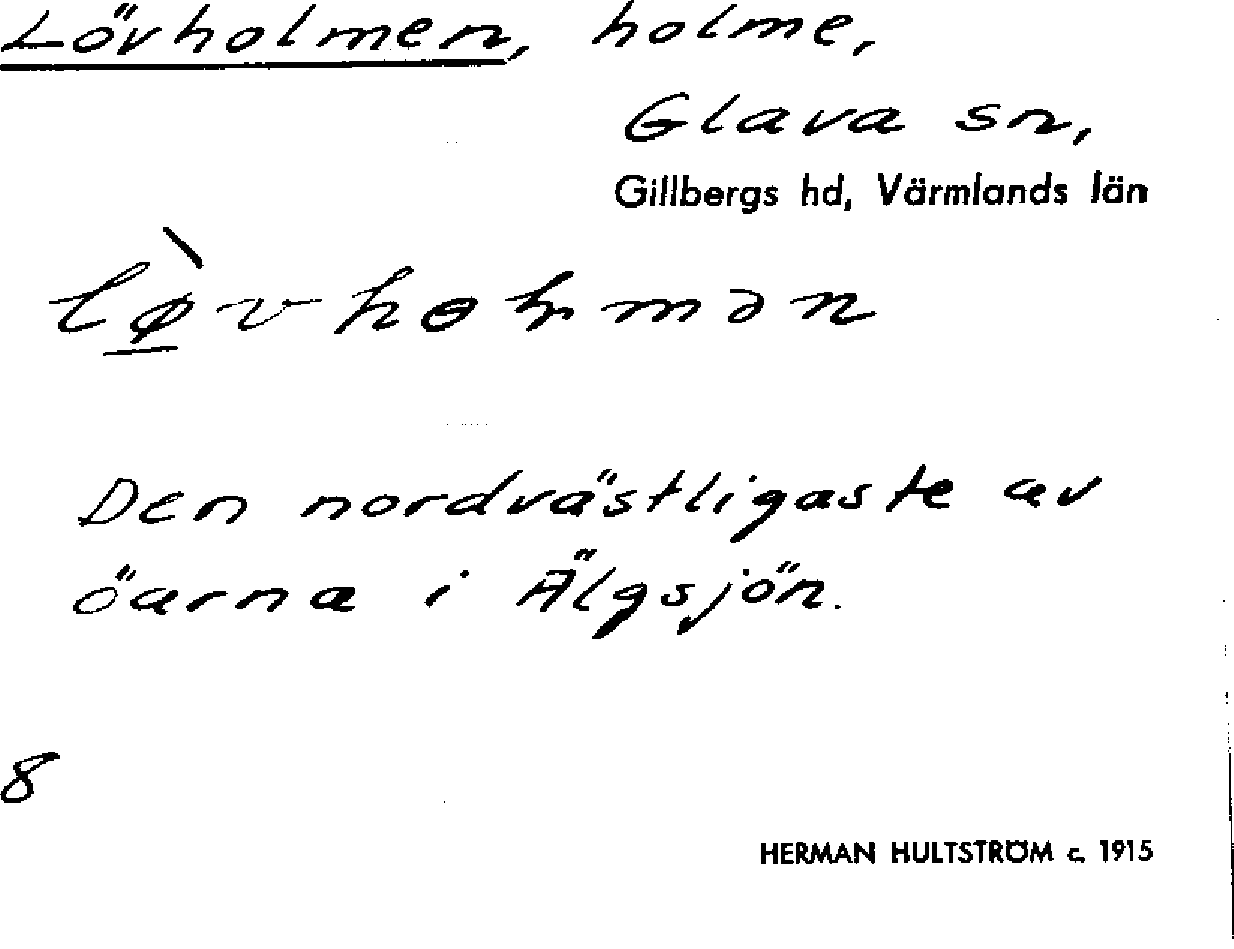 Lövholmen, holme,
Glava sn,
Gillbergs hd, Värmlands län
Den nordvästligaste av
öarna i Älgsjön.
8
HERMAN HULTSTRÖM c. 1915